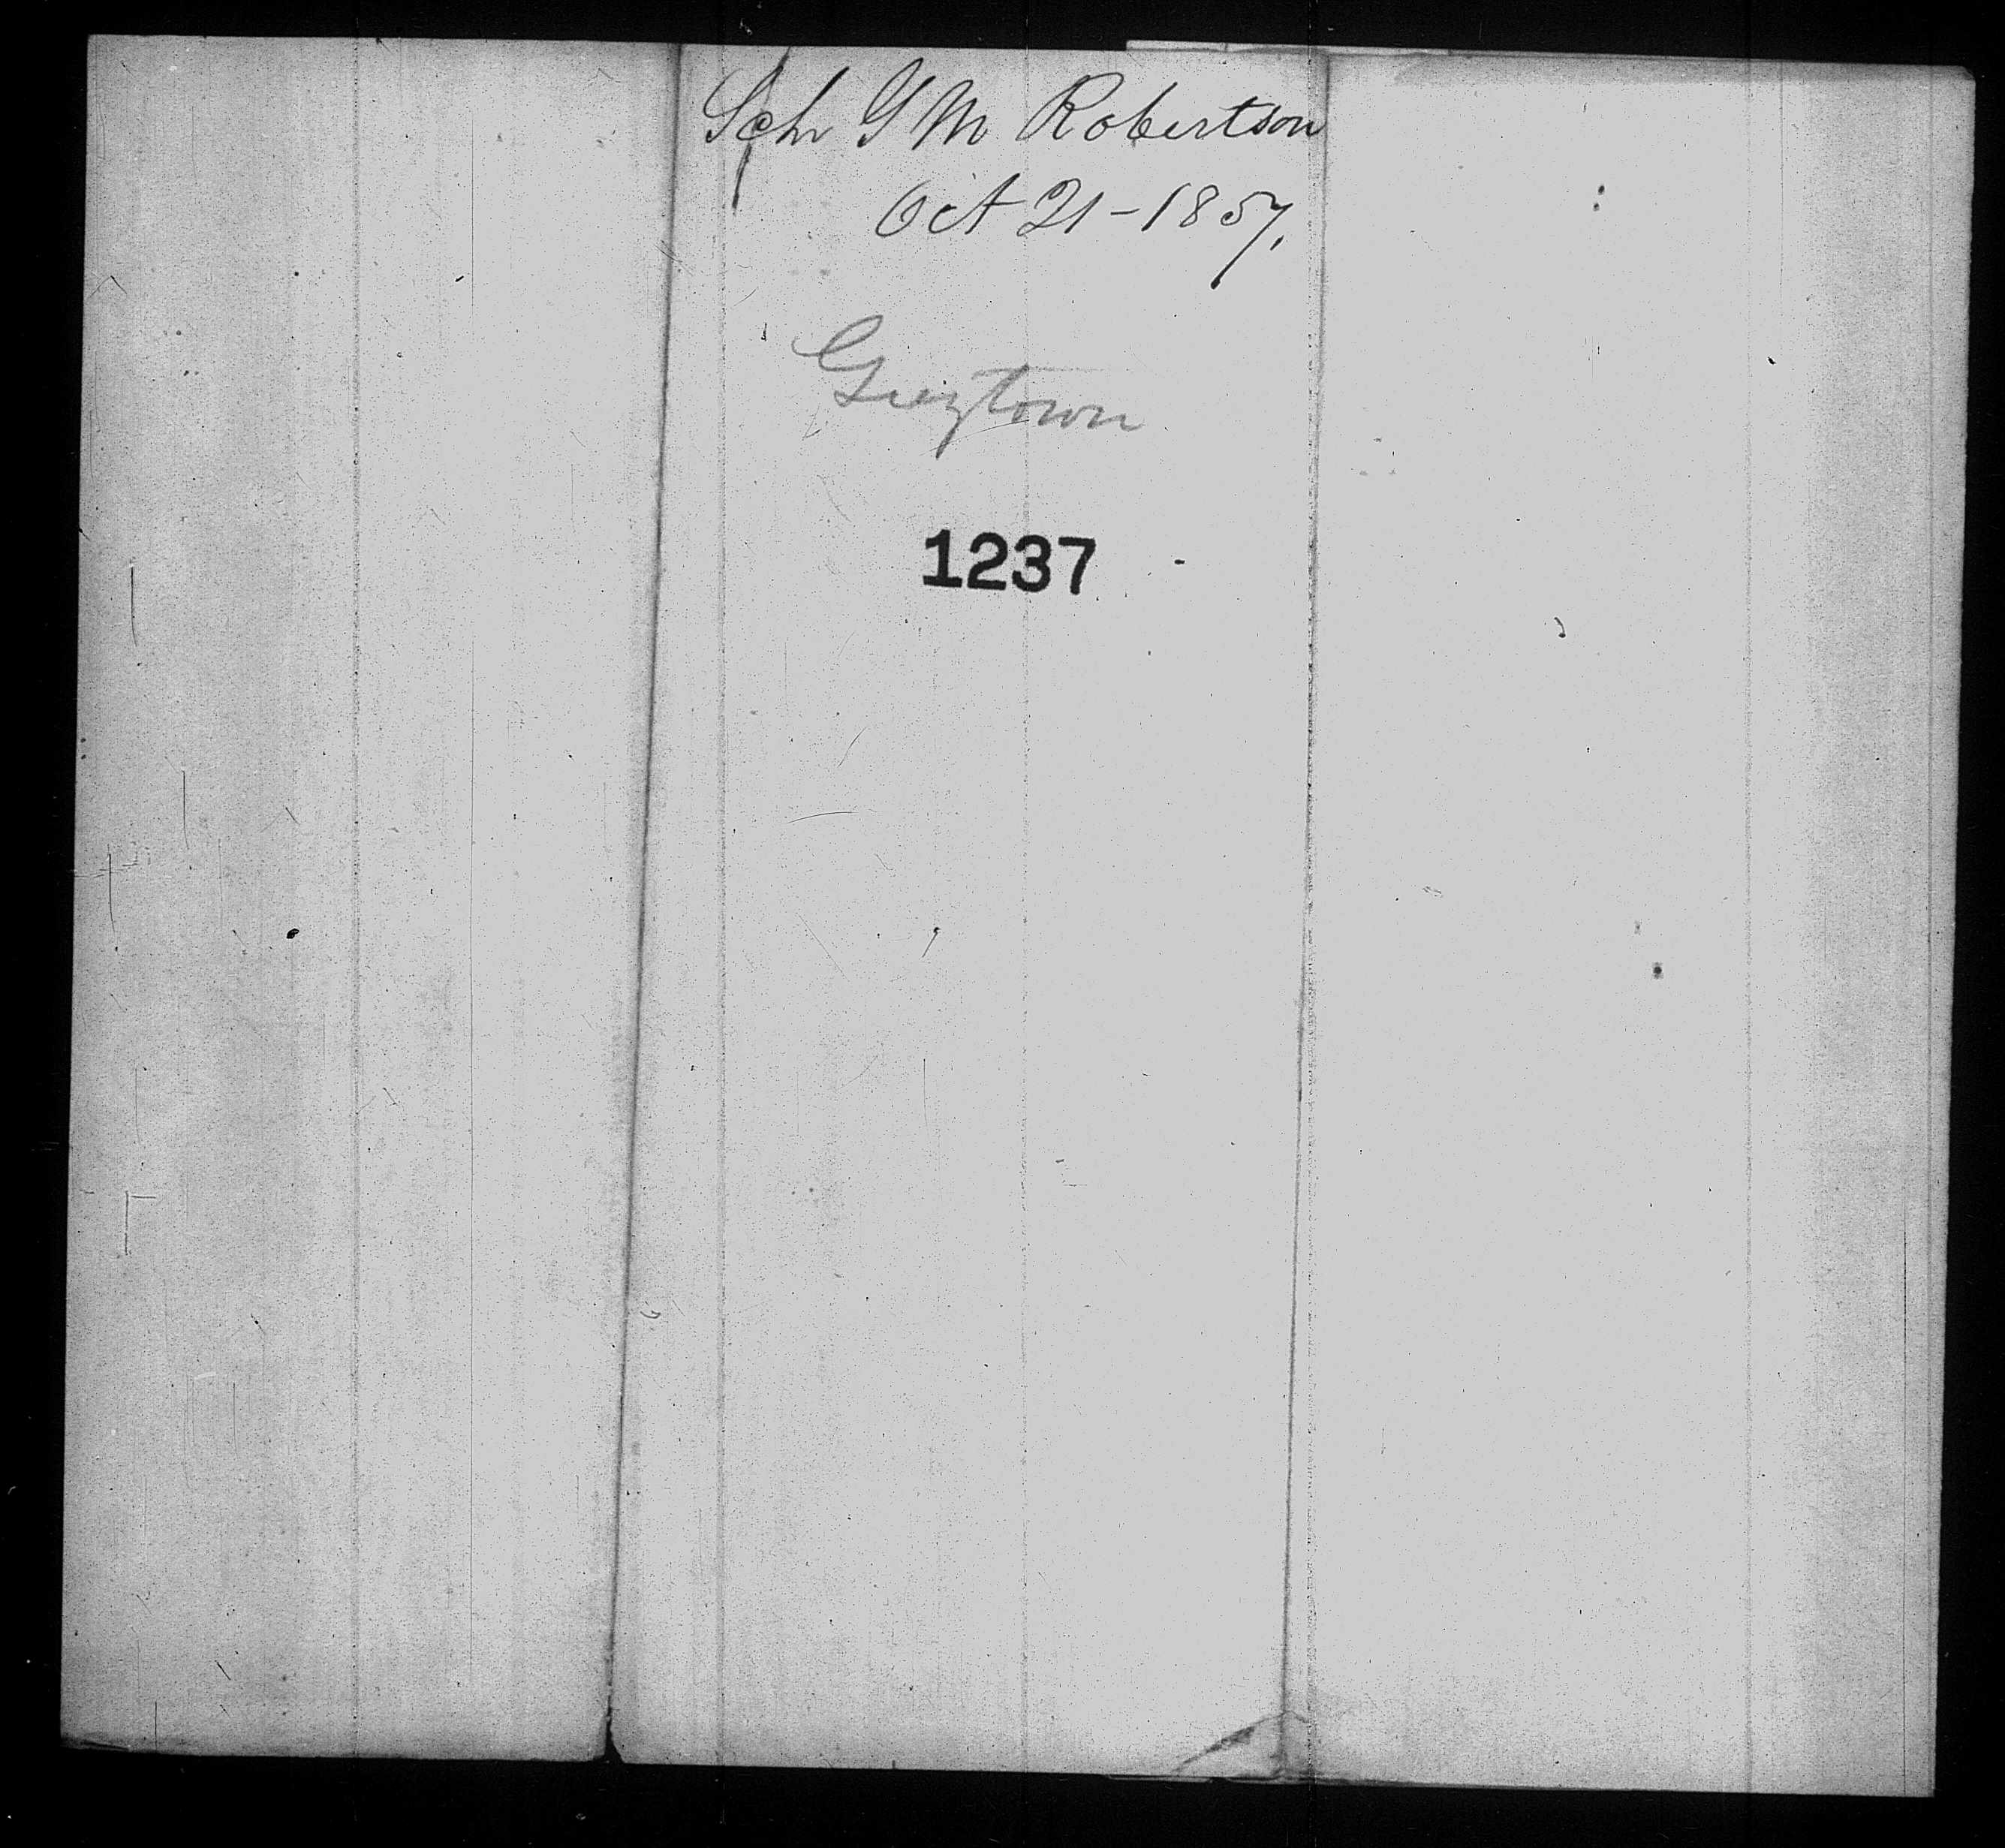 Sch G M Robertson
Oct 21-1857.
Greytown
1237